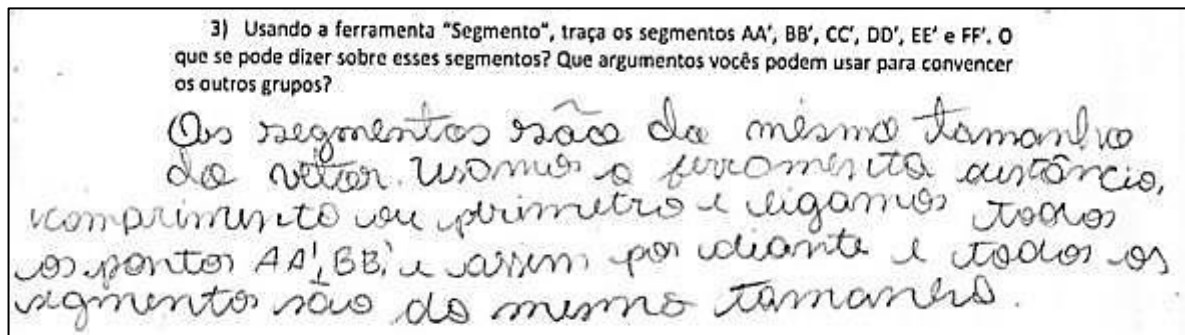 3) Usando a ferramenta "Segmento", traça os segmentos AA', BB', CC', DD', EE' e FF'. O
que se pode dizer sobre esses segmentos? Que argumentos vocês podem usar para convencer
os outros grupos?
Os segmentos são do mesmo tamanho
do vetor. Usamos a ferramenta distância,
comprimento ou perimetro e ligamos todos
os pontos AA', BB' e assim por diante e todos os
segmentos são do mesmo tamanho.